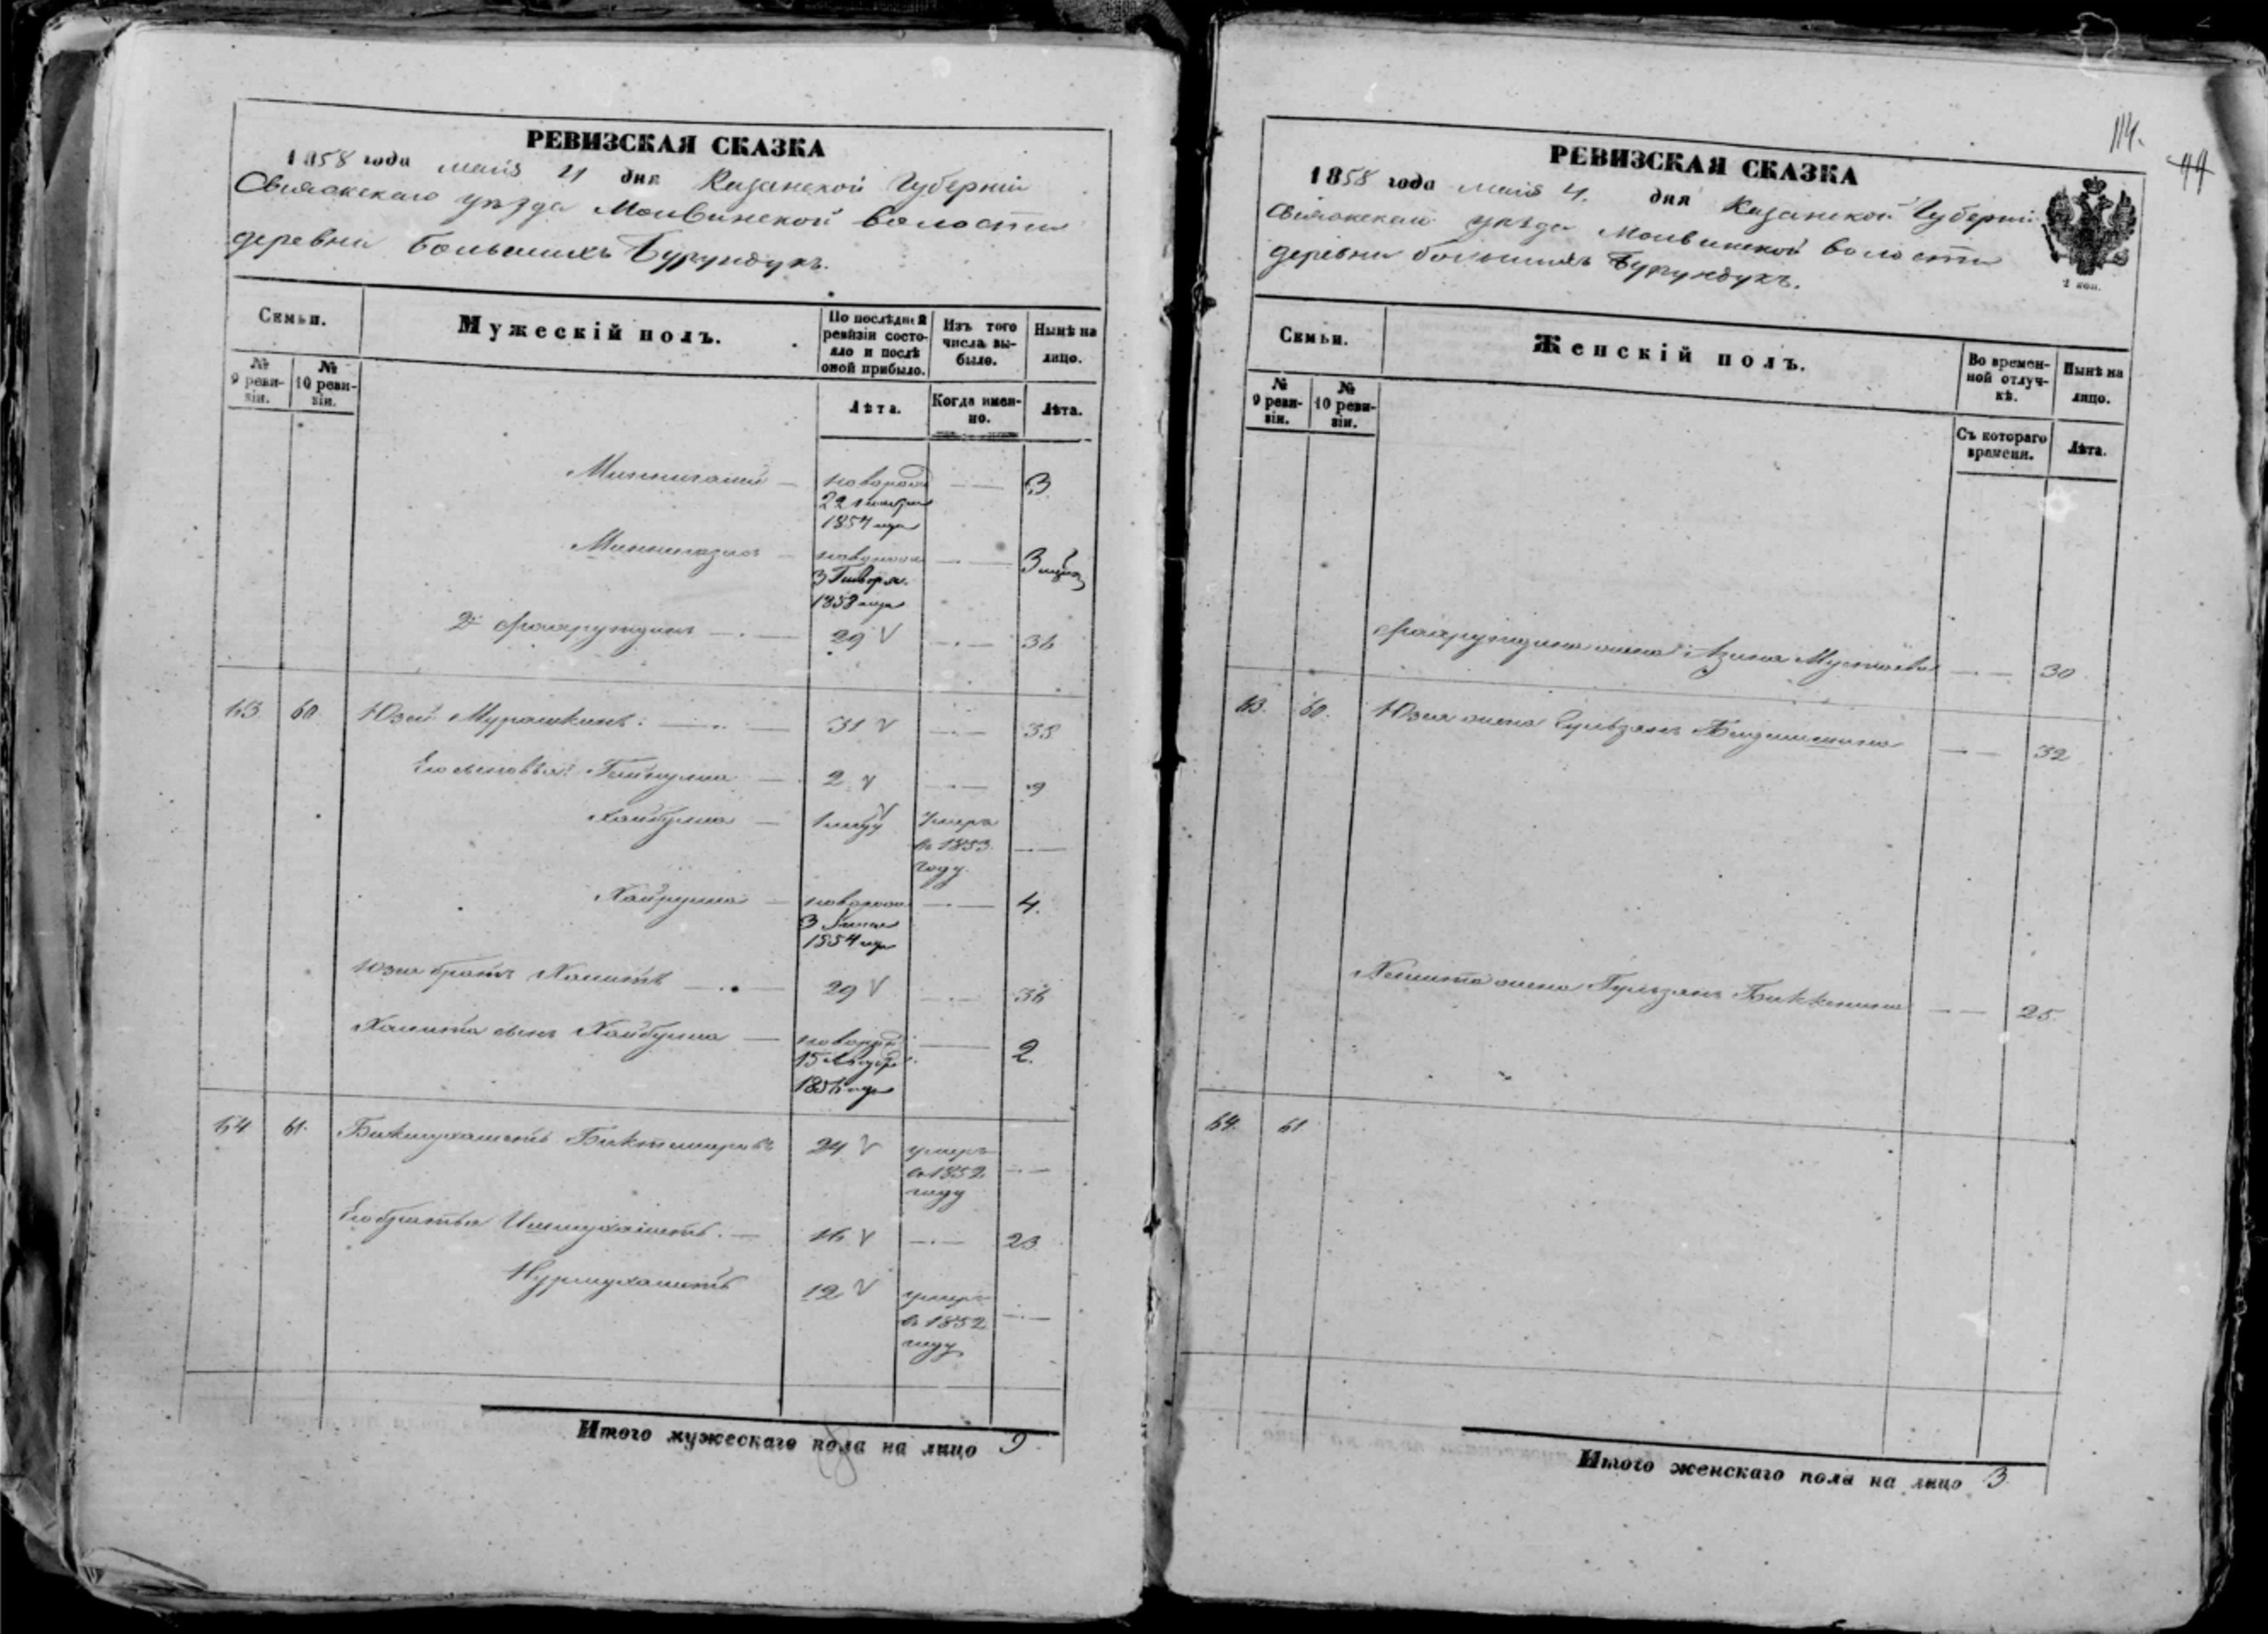 РЕВИЗСКАЯ СКАЗКА
1858 года маія 21 дня Казанской Губерніи
Свіяжскаго уѣзда Молвинской волости
деревни Большихъ Бурундукъ.
Семьи.
Мужескій полъ.
По послѣдней ревизіи состояло и послѣ оной прибыло.
Изъ того числа выбыло.
Нынѣ на лицо.
№ 9 ревизіи.
№ 10 ревизіи.
Лѣта.
Когда именно.
Лѣта.
новорож
22
1854 года
3
Миннигазыъ
новорож
3 Генваря
1858 года
3 мѣсяц
2й Фахрутдинъ — 29 V — 36
63 60 Юзей Мурашкинъ: — 31 V — 38
Его сыновья: Гайнулла — 2 V — 9
Хайбулла — 1 году V
Умеръ
въ 1853
году
Хайрулла — новорож — 4.
3
1854 года
Юзея братъ Хамитъ — 29 V — 36
Хамита сынъ Хайбулла — новорож — 2.
15
1856 года
64 61. Бикмухаметъ Биктимировъ 24 V
умеръ
въ 1852
году
Его братья Ишмухаметъ. — 16 V — 23
Нурмухаметъ 12 V
умеръ
въ 1852
году
Итого мужескаго пола на лицо 9
114.
44
РЕВИЗСКАЯ СКАЗКА
1858 года маія 21. дня Казанской Губерніи
Свіяжскаго уѣзда Молвинской волости
деревни Большихъ Бурундукъ.
2 коп.
Семьи.
Женскій полъ.
Во временной отлучкѣ.
Нынѣ на лицо.
№ 9 ревизіи.
№ 10 ревизіи.
Съ котораго времени.
Лѣта.
Фахрутдина жена Азиза — 30
63. 60. Юзея жена — 32
Хамита жена Гульзянъ Биккенина — 25.
64. 61
Итого женскаго пола на лицо 3.